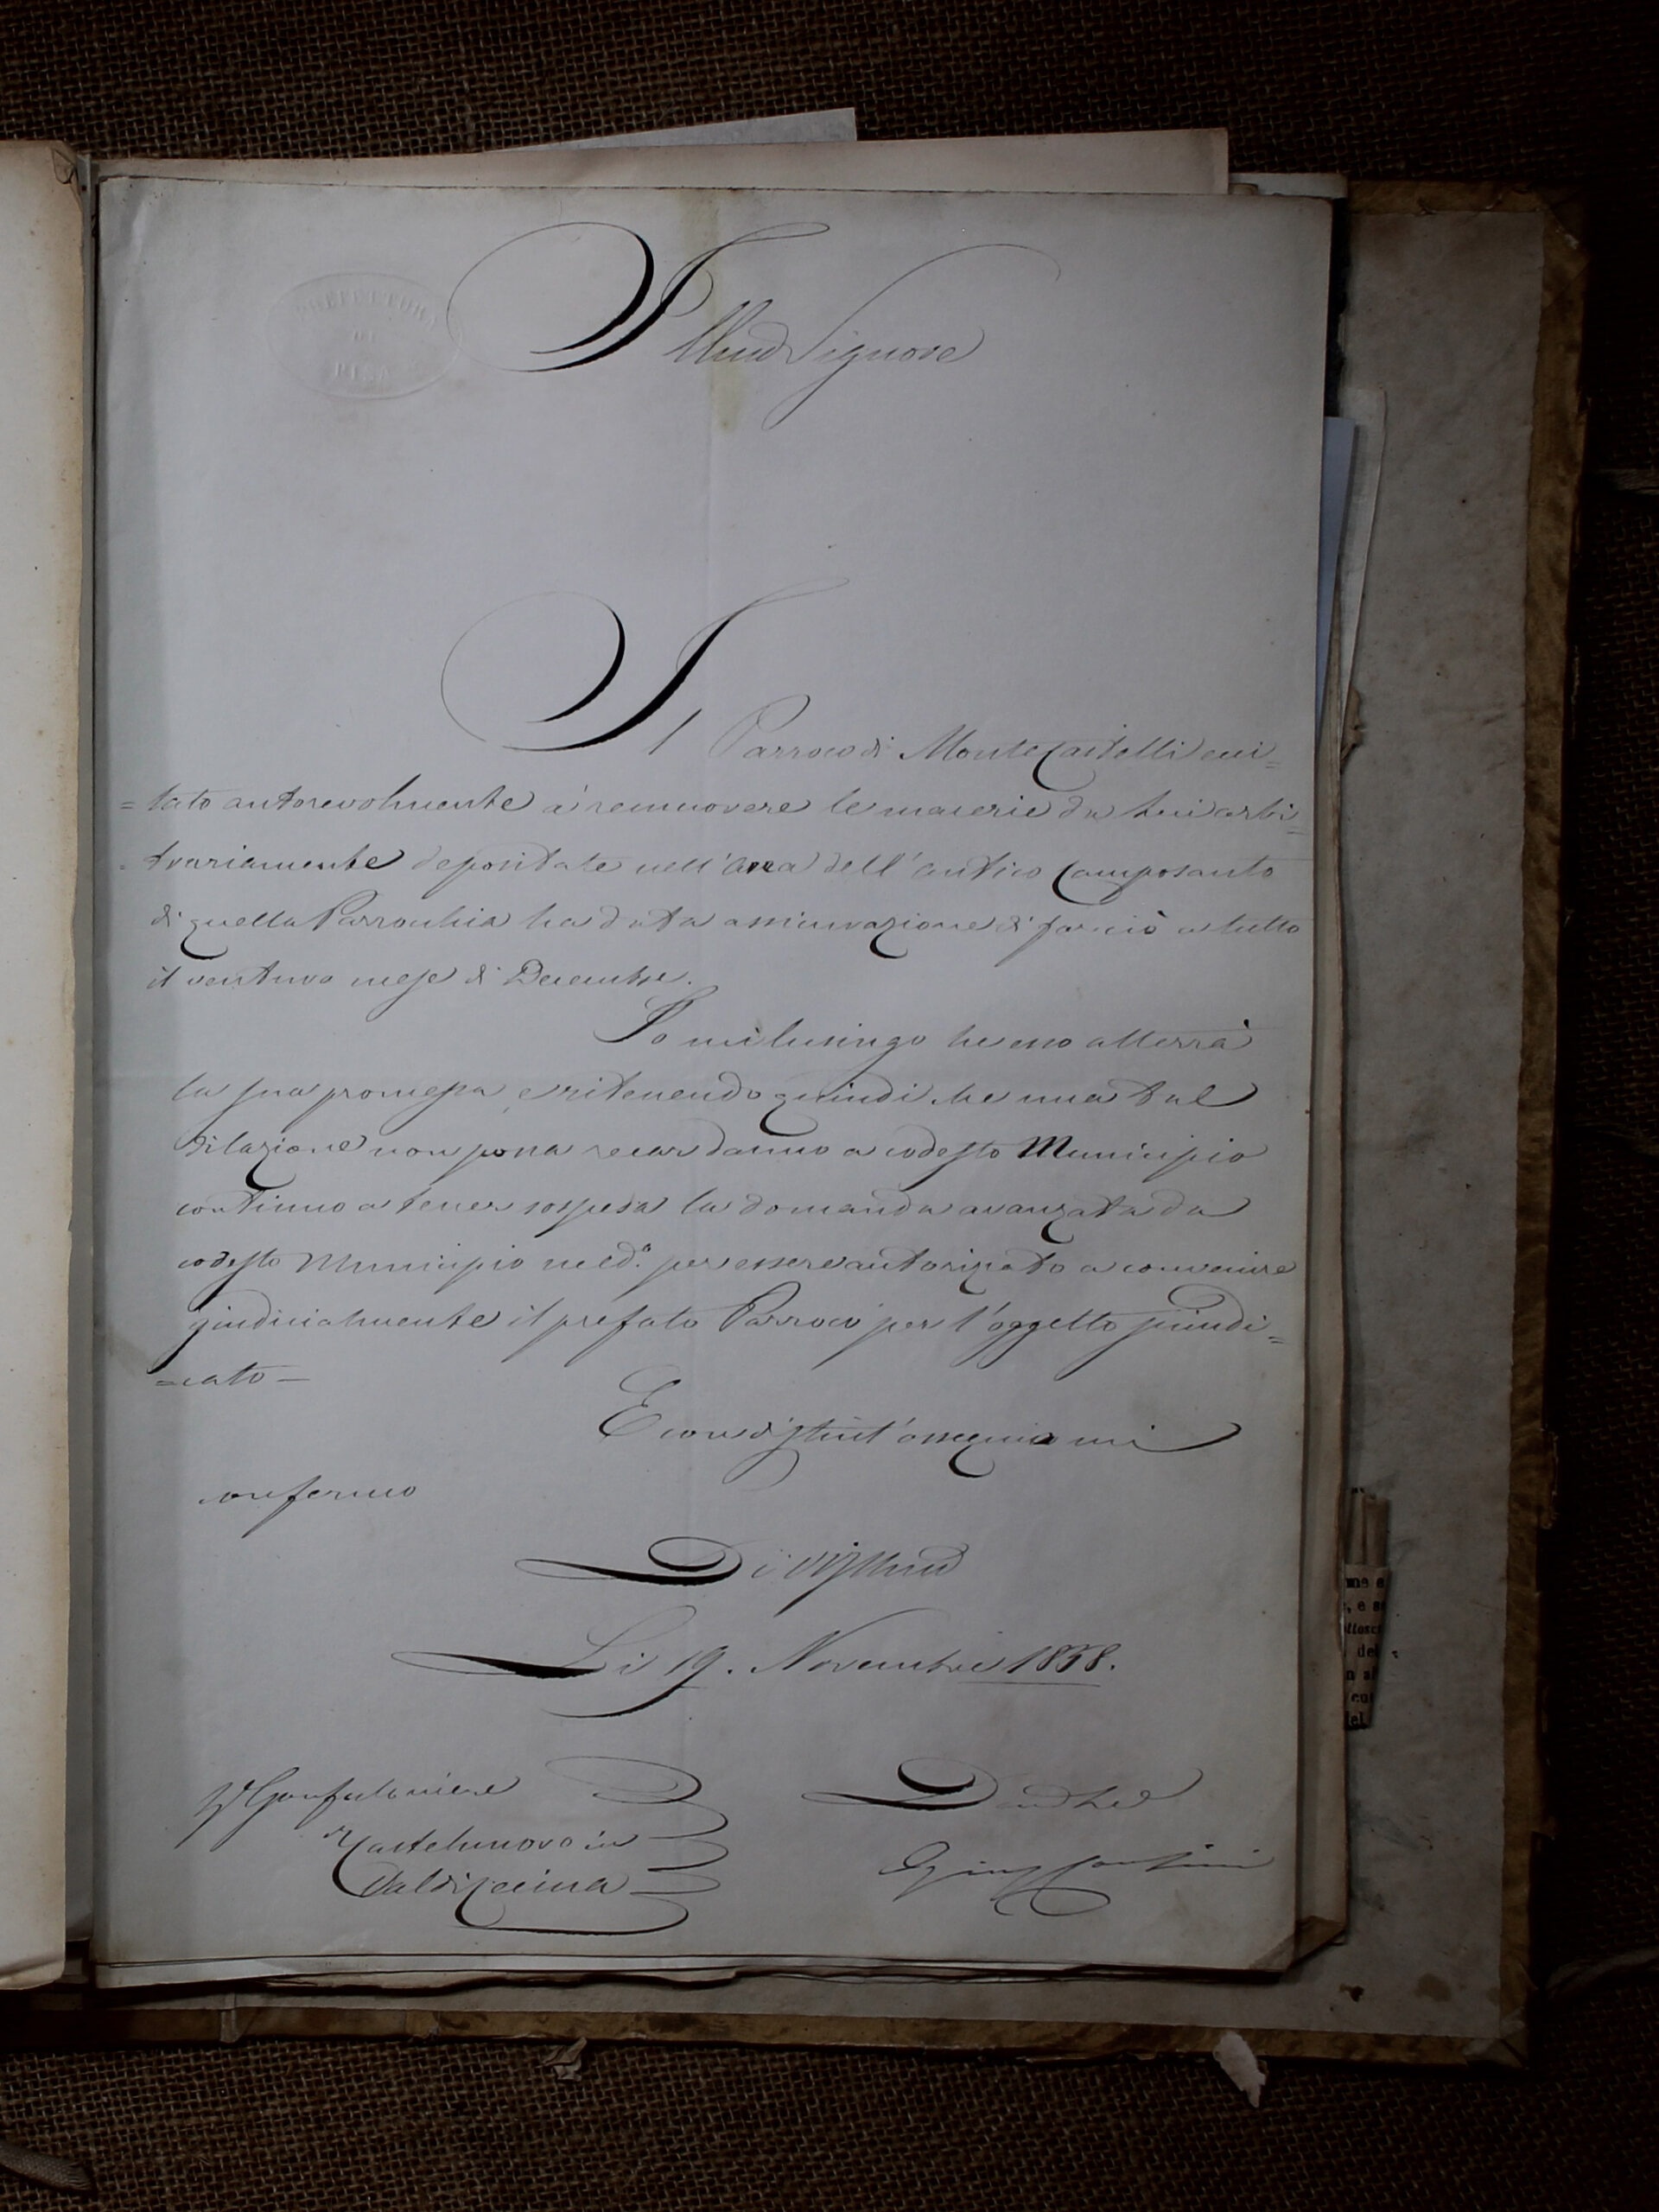 PREFETTURA
DI
PISA
Illmo Signore
Il Parroco di Monte Castelli ecci=
=tato autorevolmente a remuovere le macerie da lui arbi=
trariamente depositate nell'area dell'antico Camposanto
di quella Parrocchia ha data assicurazione di far ciò a tutto
il venturo mese di Decembre.
Io mi lusingo che esso atterrà
la sua promessa, e ritenendo quindi che una tal
dilazione non possa recar danno a codesto Municipio
continuo a tener sospesa la domanda avanzata da
codesto Municipio med.o per essere autorizzato a convenire
giudicialmente il prefato Parroco per l'oggetto suindi=
=cato=
E con distint'ossequio mi
confermo
Di VS Illma
Li 19. Novembre 1858.
Gonfaloniere
di Castelnuovo in
Valdicecina
me e
, e s
del
n al